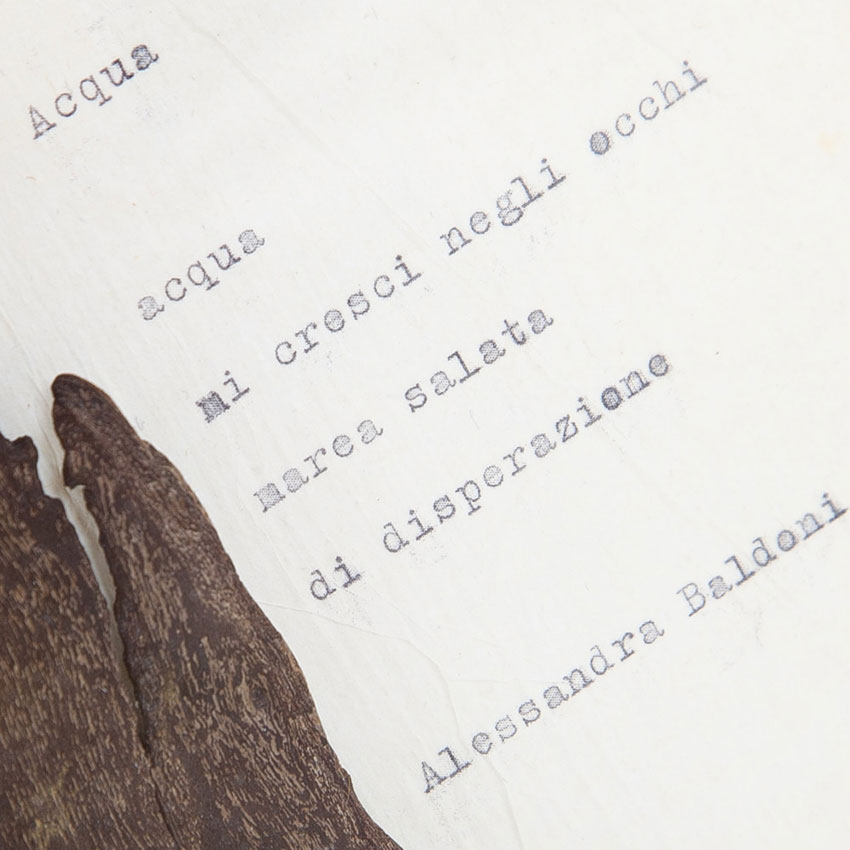 Acqua
acqua
mi cresci negli occhi
marea salata
di disperazione
Alessandra Baldoni